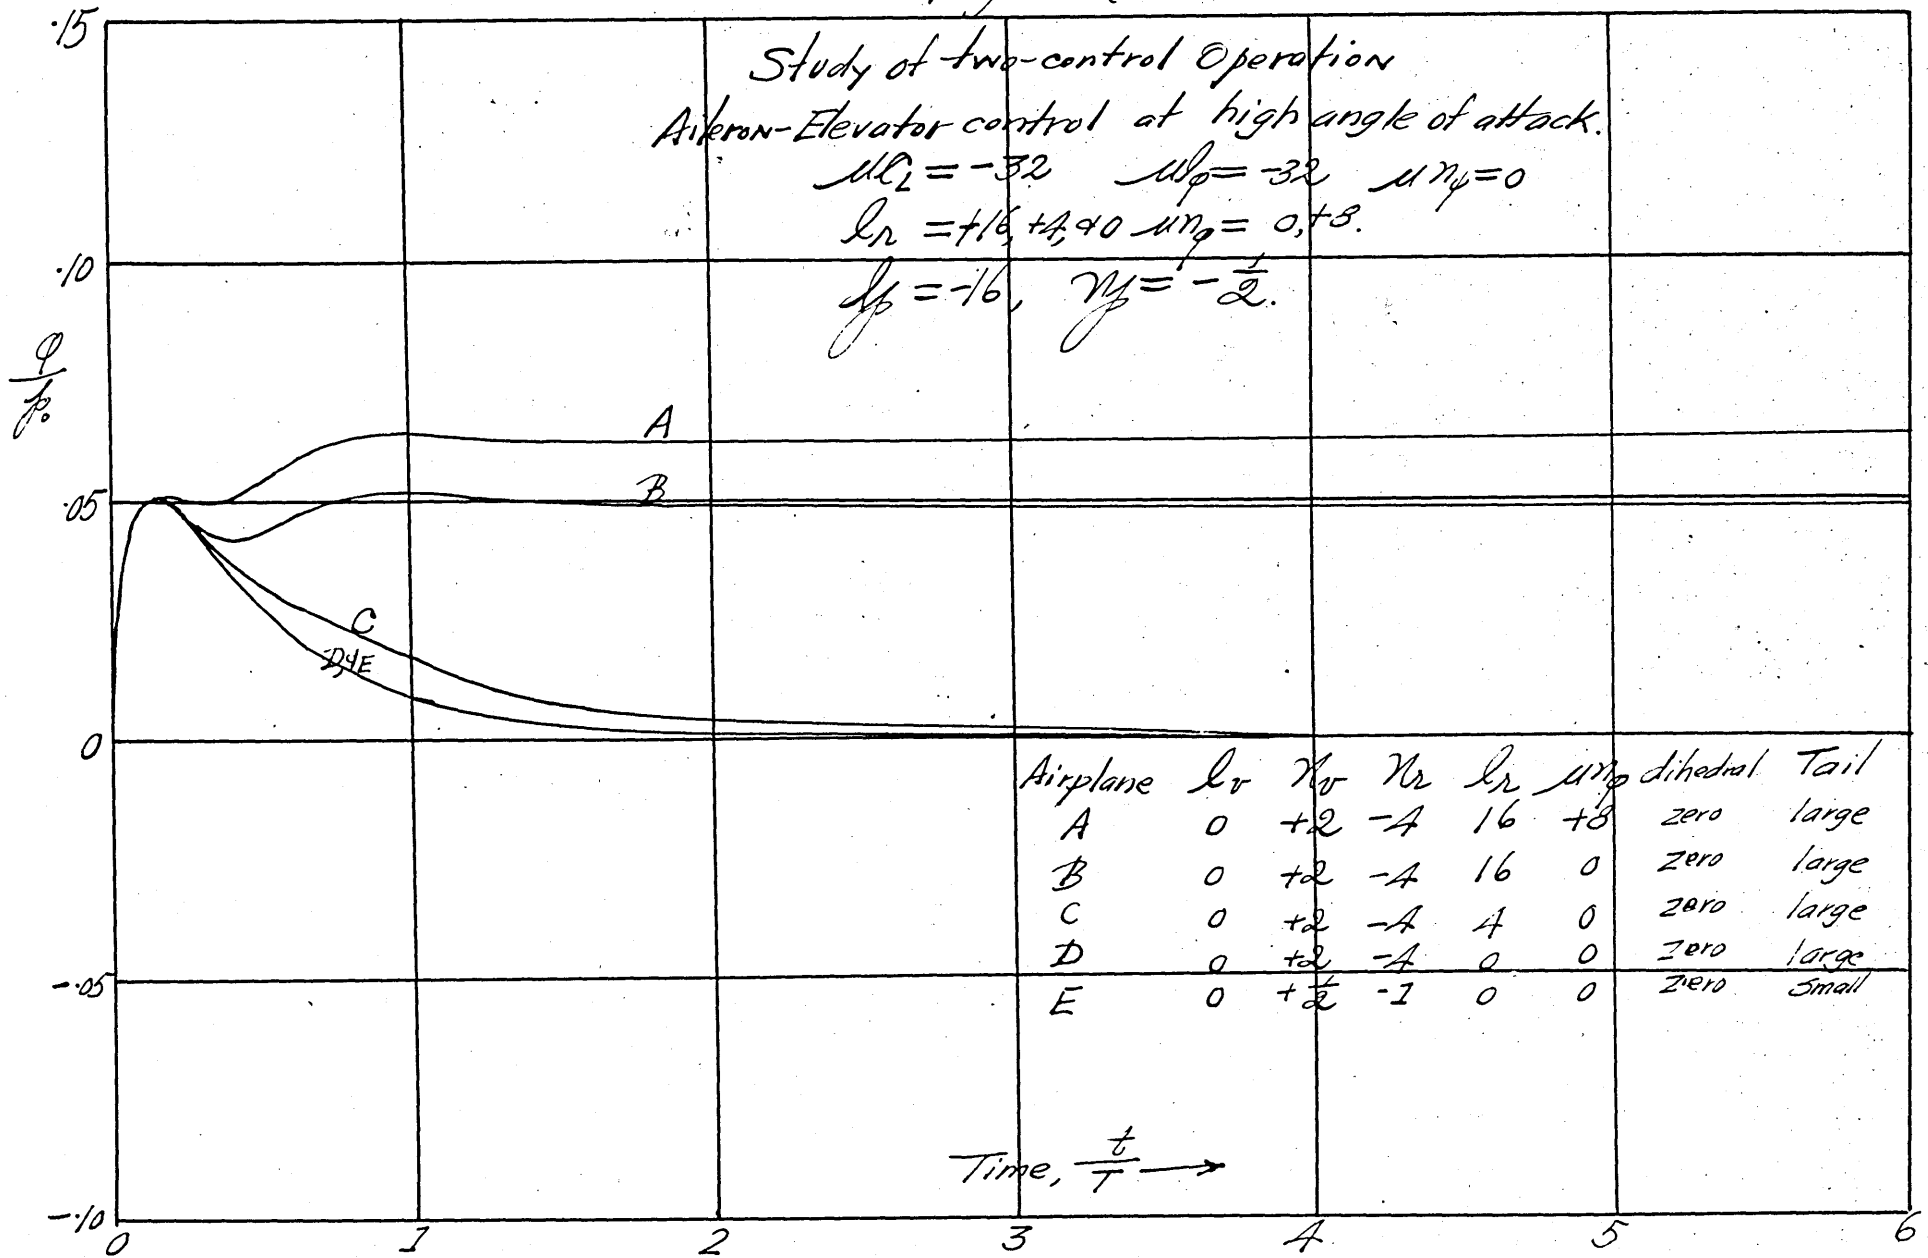 Study of two-control Operation
Aileron-Elevator control at high angle of attack.
μC_L = -32 μl_φ = -32 μn_ψ = 0
l_r = +16, +4, & 0 μn_φ = 0, +8.
l_p = -16, n_p = -1/2.
.15
.10
φ/p₀
.05
0
-.05
-.10
A
B
C
D & E
Airplane l_v n_v n_r l_r μn_φ dihedral Tail
A 0 +2 -4 16 +8 zero large
B 0 +2 -4 16 0 zero large
C 0 +2 -4 4 0 zero large
D 0 +2 -4 0 0 zero large
E 0 +1/2 -1 0 0 zero small
Time, t/T →
0 1 2 3 4 5 6